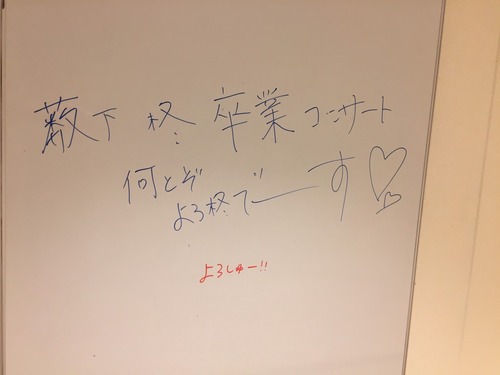 薮下 柊 卒業コンサート
何とぞ
よろ柊でーす♡
よろしゅー!!